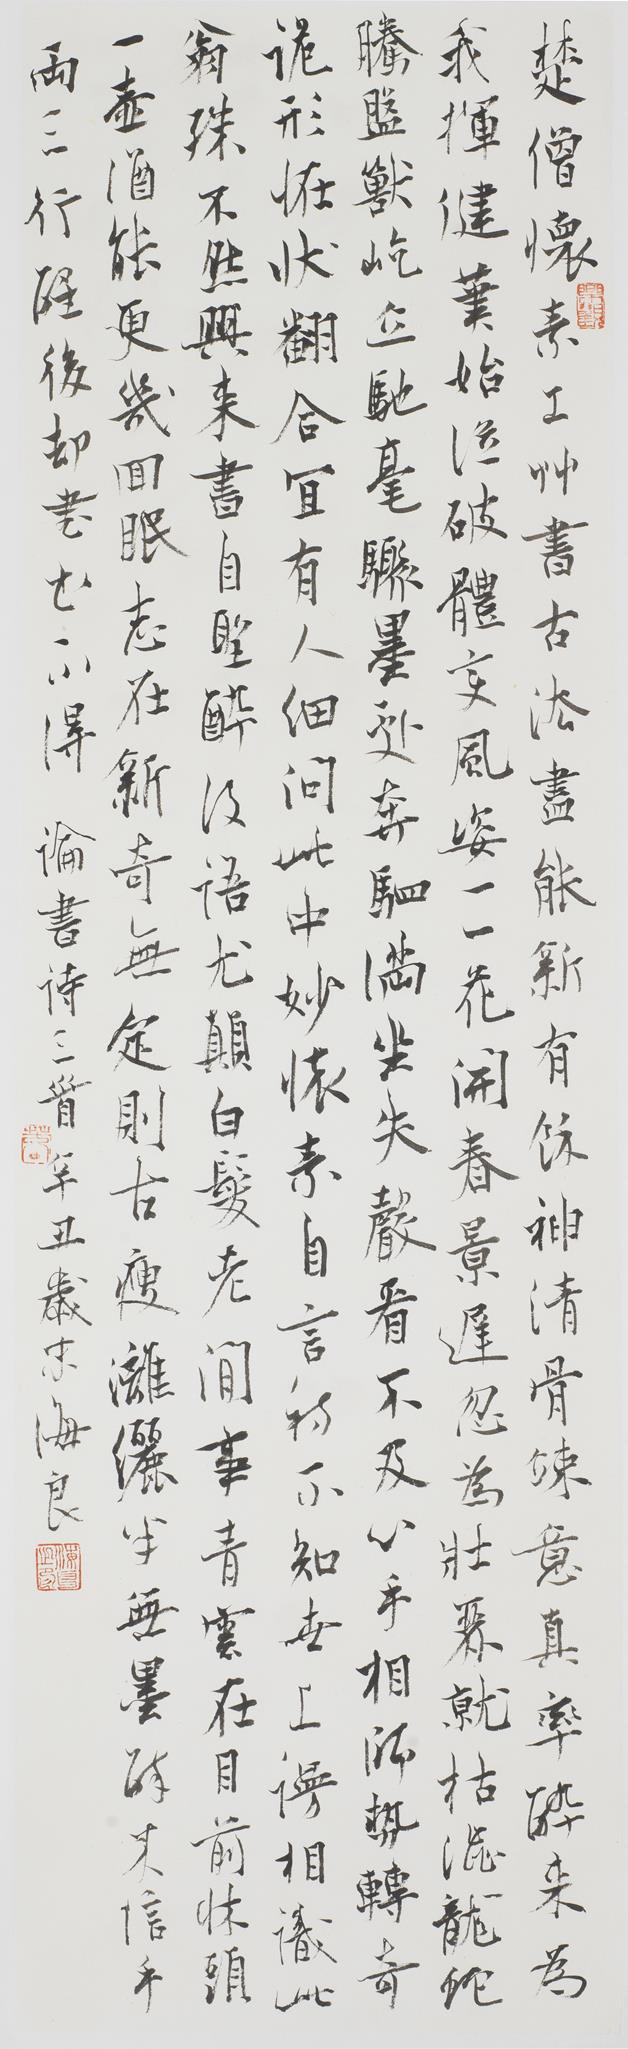 楚僧懷素工艸書古法盡能新有餘神清骨竦意真率醉来為
我揮健筆始從破體變風姿一一花開春景遲忽為壯麗就枯澁龍蛇
騰盤獸屹立馳毫驟墨劇奔駟滿坐失聲看不及心手相師勢轉奇
詭形怪狀翻合宜有人細問此中妙懷素自言初不知世上謾相識此
翁殊不然興来書自聖醉後語尤顛白髮老閒事青雲在目前牀頭
一壺酒能更幾回眠志在新奇無定則古瘦灕纚半無墨醉来信手
兩三行醒後却書书不得 論書诗三首辛丑歲末海良